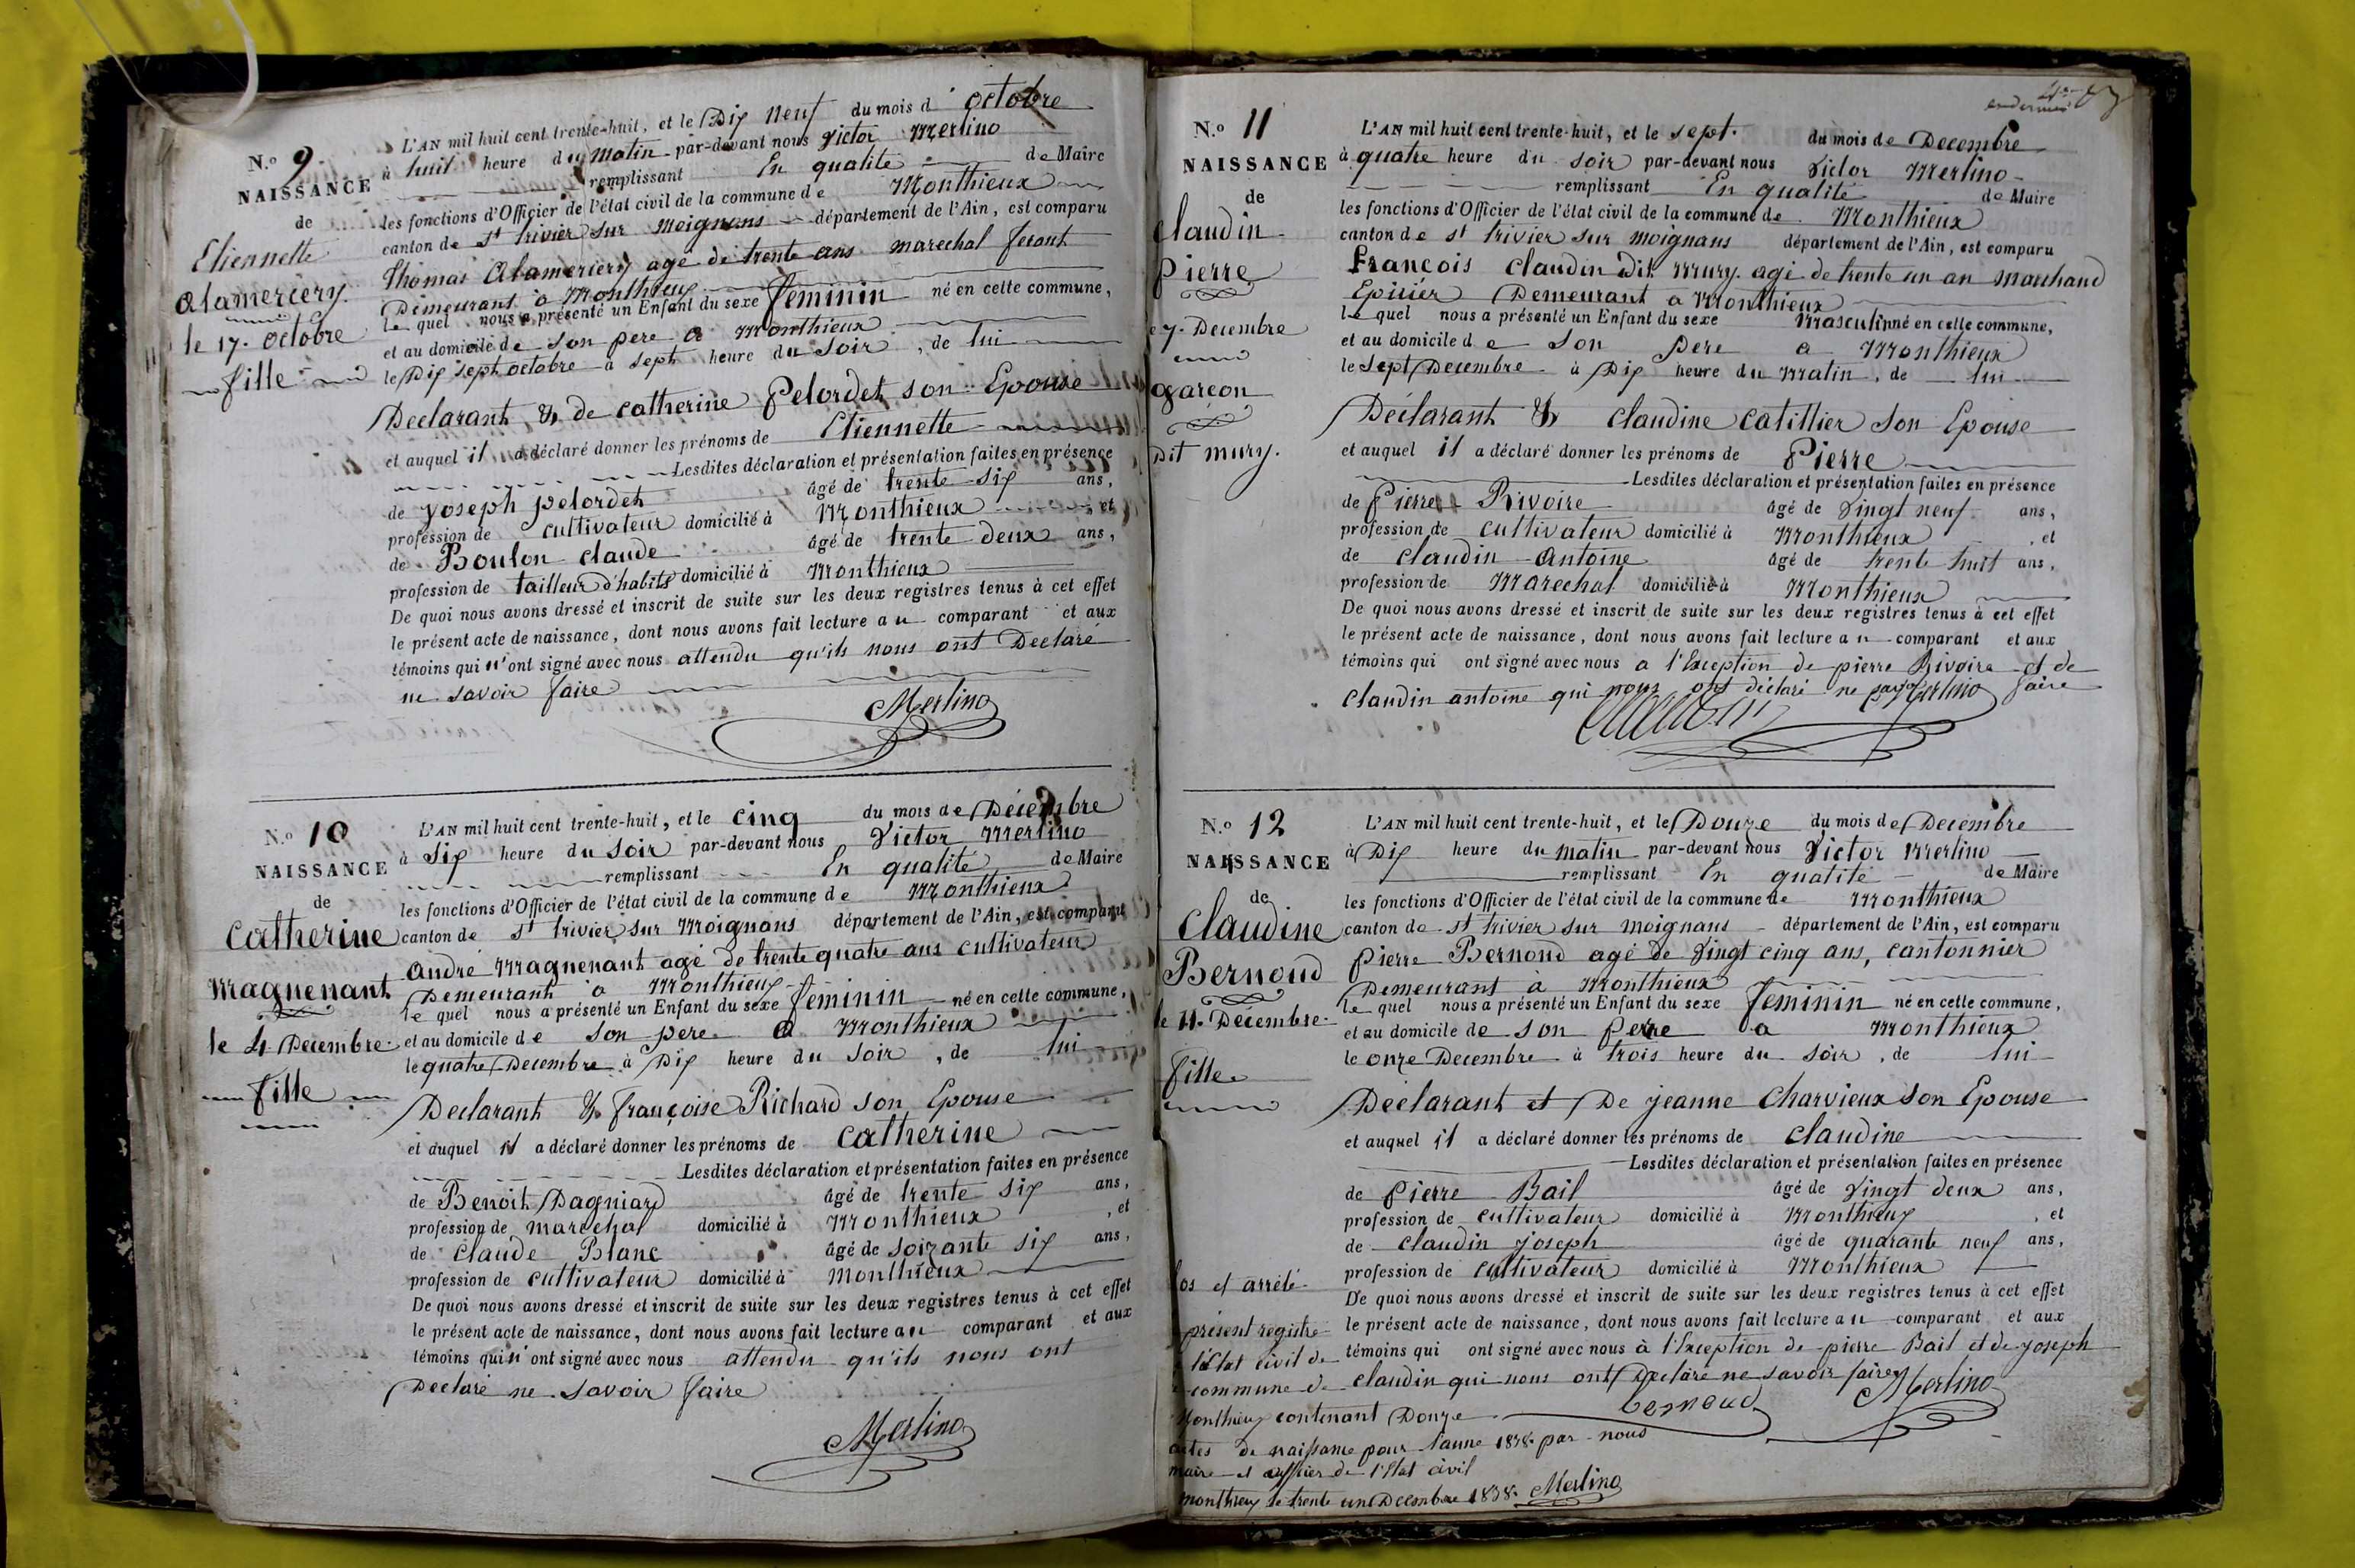 N.o 9
NAISSANCE
de
Etiennette
alamerciery
le 17. octobre
fille
L'AN mil huit cent trente-huit, et le Dix neuf du mois d'octobre
à huit heure du matin par-devant nous Victor Merlino
remplissant En qualité de Maire
les fonctions d'Officier de l'état civil de la commune de Monthieux
canton de st trivier sur moignans département de l'Ain, est comparu
Thomas alamerciery agé de trente ans marechal ferant
Demeurant a Monthieux
lequel nous a présenté un Enfant du sexe féminin né en cette commune,
et au domicile de son pere a Monthieux
le Dix sept octobre à sept heure du soir, de lui
Declarant & de catherine pelordet son Epouse
et auquel il a déclaré donner les prénoms de Etiennette
Lesdites déclaration et présentation faites en présence
de joseph pelordet âgé de trente six ans,
profession de cultivateur domicilié à Monthieux et
de Boulon claude âgé de trente deux ans,
profession de tailleur d'habits domicilié à Monthieux
De quoi nous avons dressé et inscrit de suite sur les deux registres tenus à cet effet
le présent acte de naissance, dont nous avons fait lecture au comparant et aux
témoins qui n'ont signé avec nous attendu qu'ils nous ont Declaré
ne savoir faire
Merlino
N.o 10
NAISSANCE
de
Catherine
Magnenant
le 4 Decembre
fille
L'AN mil huit cent trente-huit, et le cinq du mois de Décembre
à six heure du soir par-devant nous Victor Merlino
remplissant En qualité de Maire
les fonctions d'Officier de l'état civil de la commune de Monthieux
canton de st trivier sur Moignans département de l'Ain, est comparu
andré Magnenant agé de trente quatre ans cultivateur
Demeurant a Monthieux
lequel nous a présenté un Enfant du sexe féminin né en cette commune,
et au domicile de son pere a Monthieux
le quatre Decembre à Dix heure du soir, de lui
Declarant & françoise Richard son Epouse
et auquel il a déclaré donner les prénoms de catherine
Lesdites déclaration et présentation faites en présence
de Benoit Dagniard âgé de trente six ans,
profession de marechal domicilié à Monthieux, et
de Claude Blanc âgé de soixante six ans,
profession de cultivateur domicilié à Monthieux
De quoi nous avons dressé et inscrit de suite sur les deux registres tenus à cet effet
le présent acte de naissance, dont nous avons fait lecture au comparant et aux
témoins qui n'ont signé avec nous attendu qu'ils nous ont
Declaré ne savoir faire
Merlino
N.o 11
NAISSANCE
de
claudin
pierre
7. Decembre
garcon
Dit mury.
L'AN mil huit cent trente-huit, et le sept. du mois de Decembre
à quatre heure du soir par-devant nous Victor Merlino
remplissant En qualité de Maire
les fonctions d'Officier de l'état civil de la commune de Monthieux
canton de st trivier sur moignans département de l'Ain, est comparu
françois claudin Dit mury. agé de trente un an marchand
Epicier Demeurant a Monthieux
lequel nous a présenté un Enfant du sexe Masculin né en cette commune,
et au domicile de son pere a Monthieux
le sept Decembre à Dix heure du Matin, de lui
Déclarant & claudine catillier son Epouse
et auquel il a déclaré donner les prénoms de Pierre
Lesdites déclaration et présentation faites en présence
de Pierre Rivoire âgé de Vingt neuf ans,
profession de cultivateur domicilié à Monthieux, et
de claudin Antoine âgé de trente huit ans,
profession de Marechal domicilié à Monthieux
De quoi nous avons dressé et inscrit de suite sur les deux registres tenus à cet effet
le présent acte de naissance, dont nous avons fait lecture au comparant et aux
témoins qui ont signé avec nous a l'Exception de pierre Rivoire et de
claudin antoine qui nous ont déclaré ne savoir faire
Merlino
N.o 12
NAISSANCE
de
Claudine
Bernoud
le 11. Decembre
fille
L'AN mil huit cent trente-huit, et le Douze du mois de Decembre
à Dix heure du matin par-devant nous Victor Merlino
remplissant En qualité de Maire
les fonctions d'Officier de l'état civil de la commune de Monthieux
canton de st trivier sur moignans département de l'Ain, est comparu
pierre Bernoud agé de Vingt cinq ans, cantonnier
Demeurant à Monthieux
lequel nous a présenté un Enfant du sexe feminin né en cette commune,
et au domicile de son Pere a Monthieux
le onze Decembre à trois heure du soir, de lui
Déclarant et De jeanne Charvieux son Epouse
et auquel il a déclaré donner les prénoms de claudine
Lesdites déclaration et présentation faites en présence
de pierre Bail âgé de Vingt deux ans,
profession de cultivateur domicilié à Monthieux, et
de claudin joseph âgé de quarante neuf ans,
profession de cultivateur domicilié à Monthieux
De quoi nous avons dressé et inscrit de suite sur les deux registres tenus à cet effet
le présent acte de naissance, dont nous avons fait lecture au comparant et aux
témoins qui ont signé avec nous à l'Exception de pierre Bail et de joseph
claudin qui nous ont Declaré ne savoir faire
Bernoud Merlino
los et arrêté
présent registre
l'Etat civil de
commune de
Monthieux contenant Douze
actes de naissance pour l'anne 1838. par nous
maire et officier de l'Etat civil
Monthieux le trente un Decembre 1838. Merlino